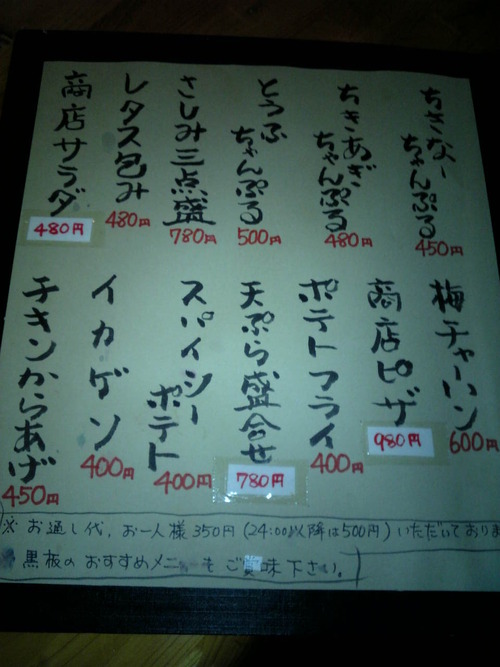 ちきなー
ちゃんぷる
450円
ちきあぎ
ちゃんぷる
480円
とうふ
ちゃんぷる
500円
さしみ三点盛
780円
レタス包み
480円
商店サラダ
480円
梅チャーハン
600円
商店ピザ
980円
ポテトフライ
400円
天ぷら盛合せ
780円
スパイシー
ポテト
400円
イカゲソ
400円
チキンからあげ
450円
※お通し代、お一人様350円(24:00以降は500円)いただいておりま
黒板のおすすめメニューもご賞味下さい。